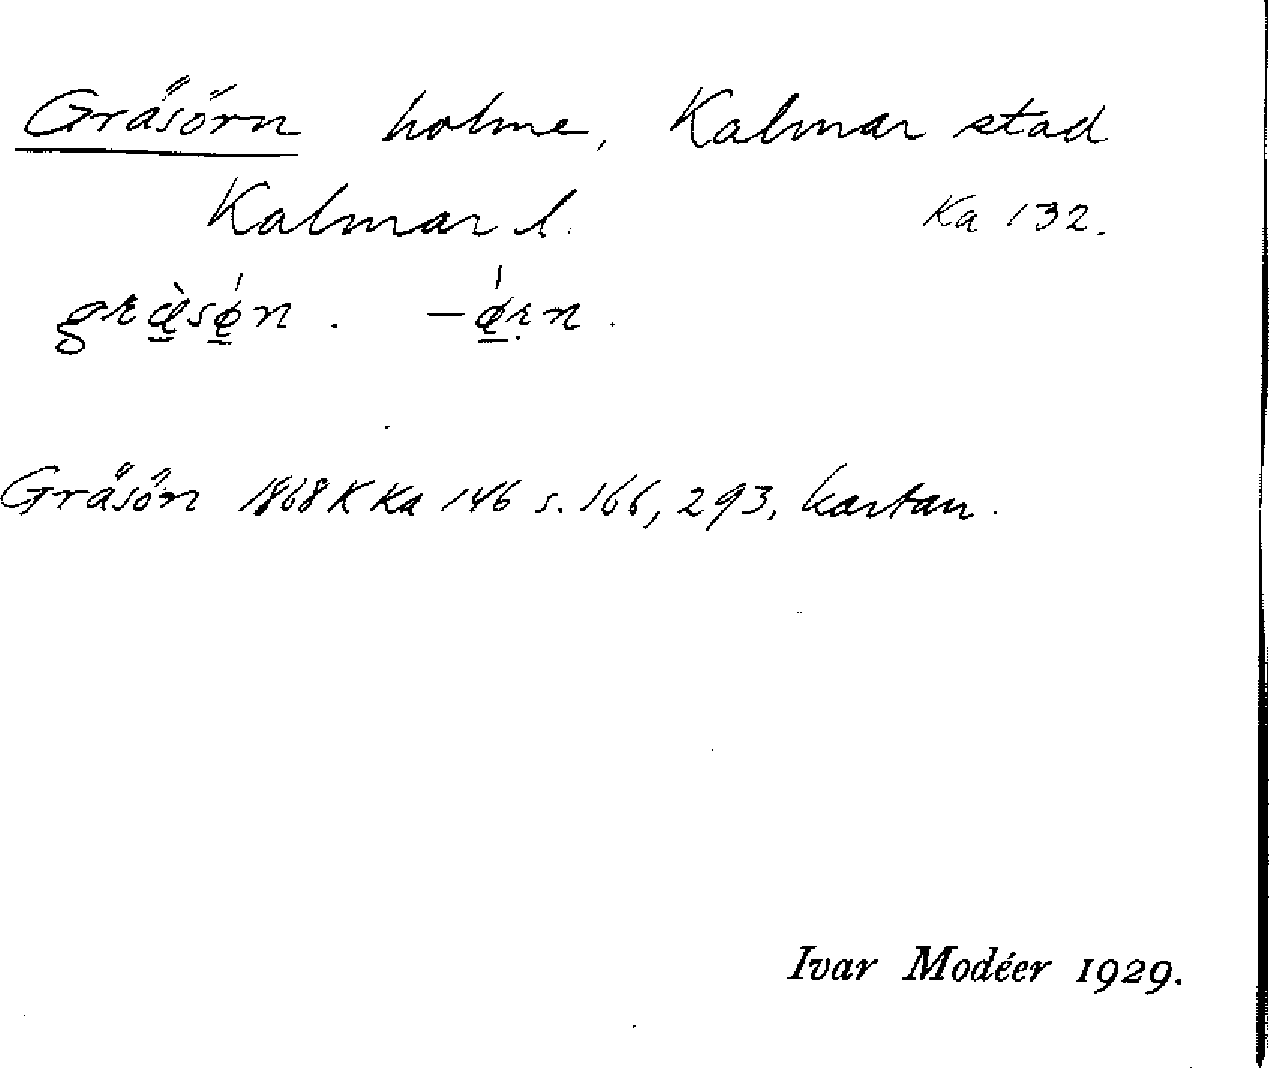 Gräsörn holme, Kalmar stad
Kalmar l. Ka 132.
græ̀sǿn. –ǿrn.
Gräsön 1868 K Ka 146 s. 166, 293, kartan.
Ivar Modéer 1929.